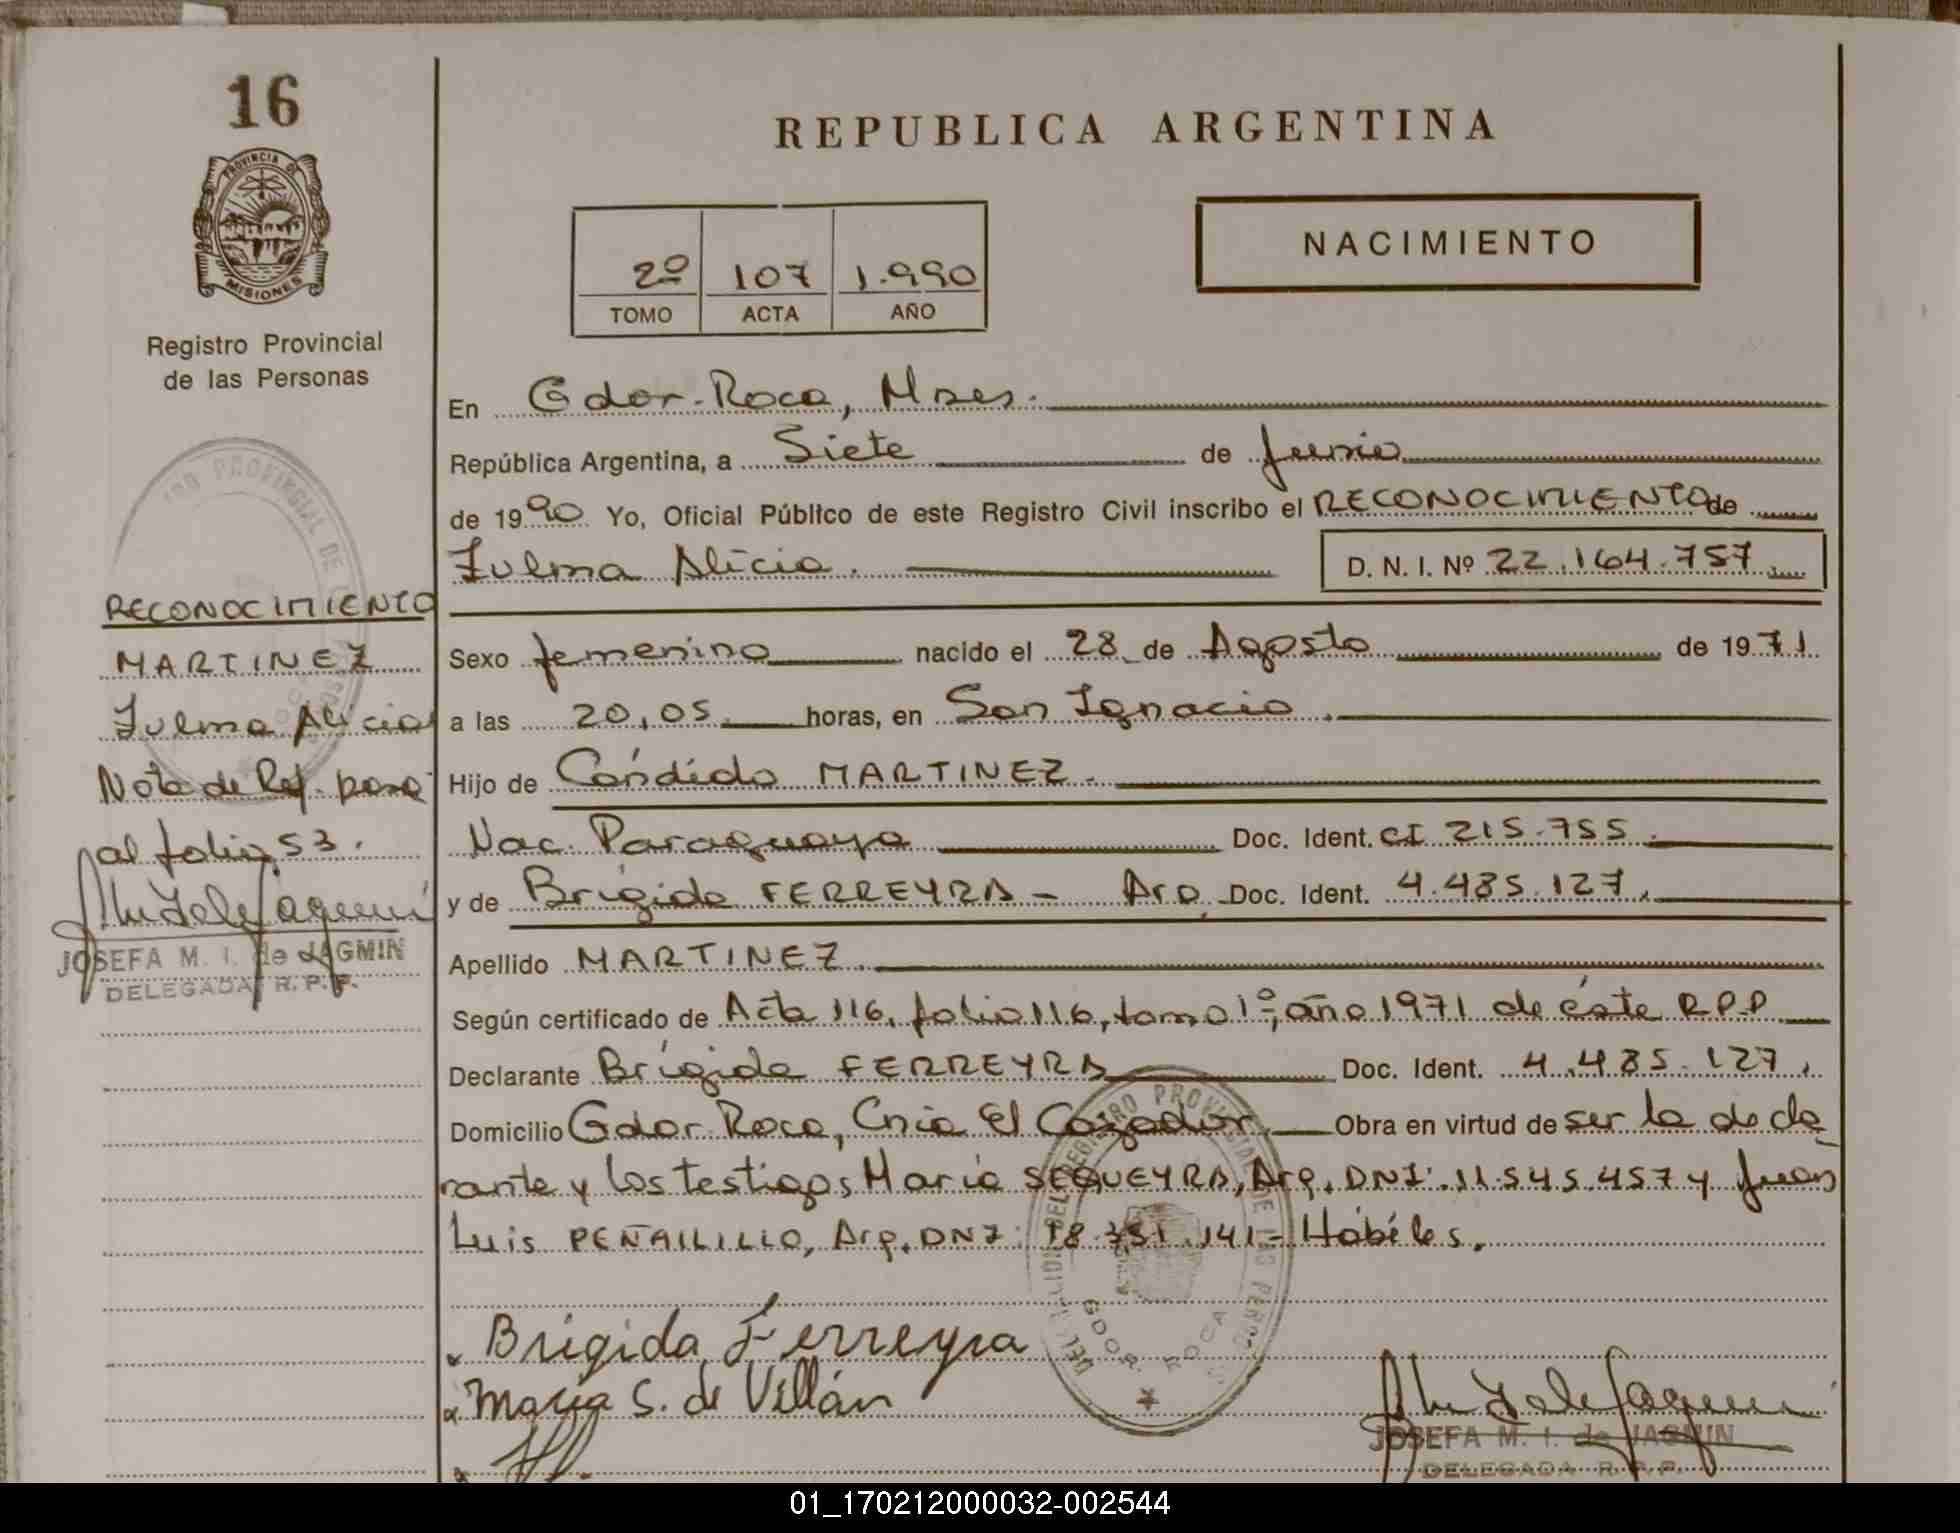 16
PROVINCIA DE
MISIONES
Registro Provincial
de las Personas
REPUBLICA ARGENTINA
2º 107 1.990
TOMO ACTA AÑO
NACIMIENTO
En Gdor. Roca, Mnes.
República Argentina, a Siete de Junio
de 1990 Yo, Oficial Público de este Registro Civil inscribo el RECONOCIMIENTO de
Zulma Alicia. D. N. I. Nº 22.164.757
Sexo femenino nacido el 28 de Agosto de 1971
a las 20,05 horas, en San Ignacio.
Hijo de Cándido MARTINEZ.
Nac. Paraguaya Doc. Ident. CI 215.755.
y de Brígida FERREYRA - Arg. Doc. Ident. 4.485.127.
Apellido MARTINEZ.
Según certificado de Acta 116, folio 116, tomo 1º, año 1971 de éste R.P.P
Declarante Brígida FERREYRA Doc. Ident. 4.485.127.
Domicilio Gdor. Roca, Cnia El Cazador. Obra en virtud de ser la decla
rante y los testigos María SEQUEYRA, Arg. DNI: 11.545.457 y Juan
Luis PEÑAILILLO, Arg. DNI: 18.751.141 - Hábiles.
Brigida Ferreyra
Maria S. de Villán
JOSEFA M. I. de JAGMIN
DELEGADA R.P.P.
RECONOCIMIENTO
MARTINEZ
Zulma Alicia
Nota de Ref. pasa
al folio 53.
JOSEFA M. I. de JAGMIN
DELEGADA R.P.P.
GDOR. ROCA
01_170212000032-002544